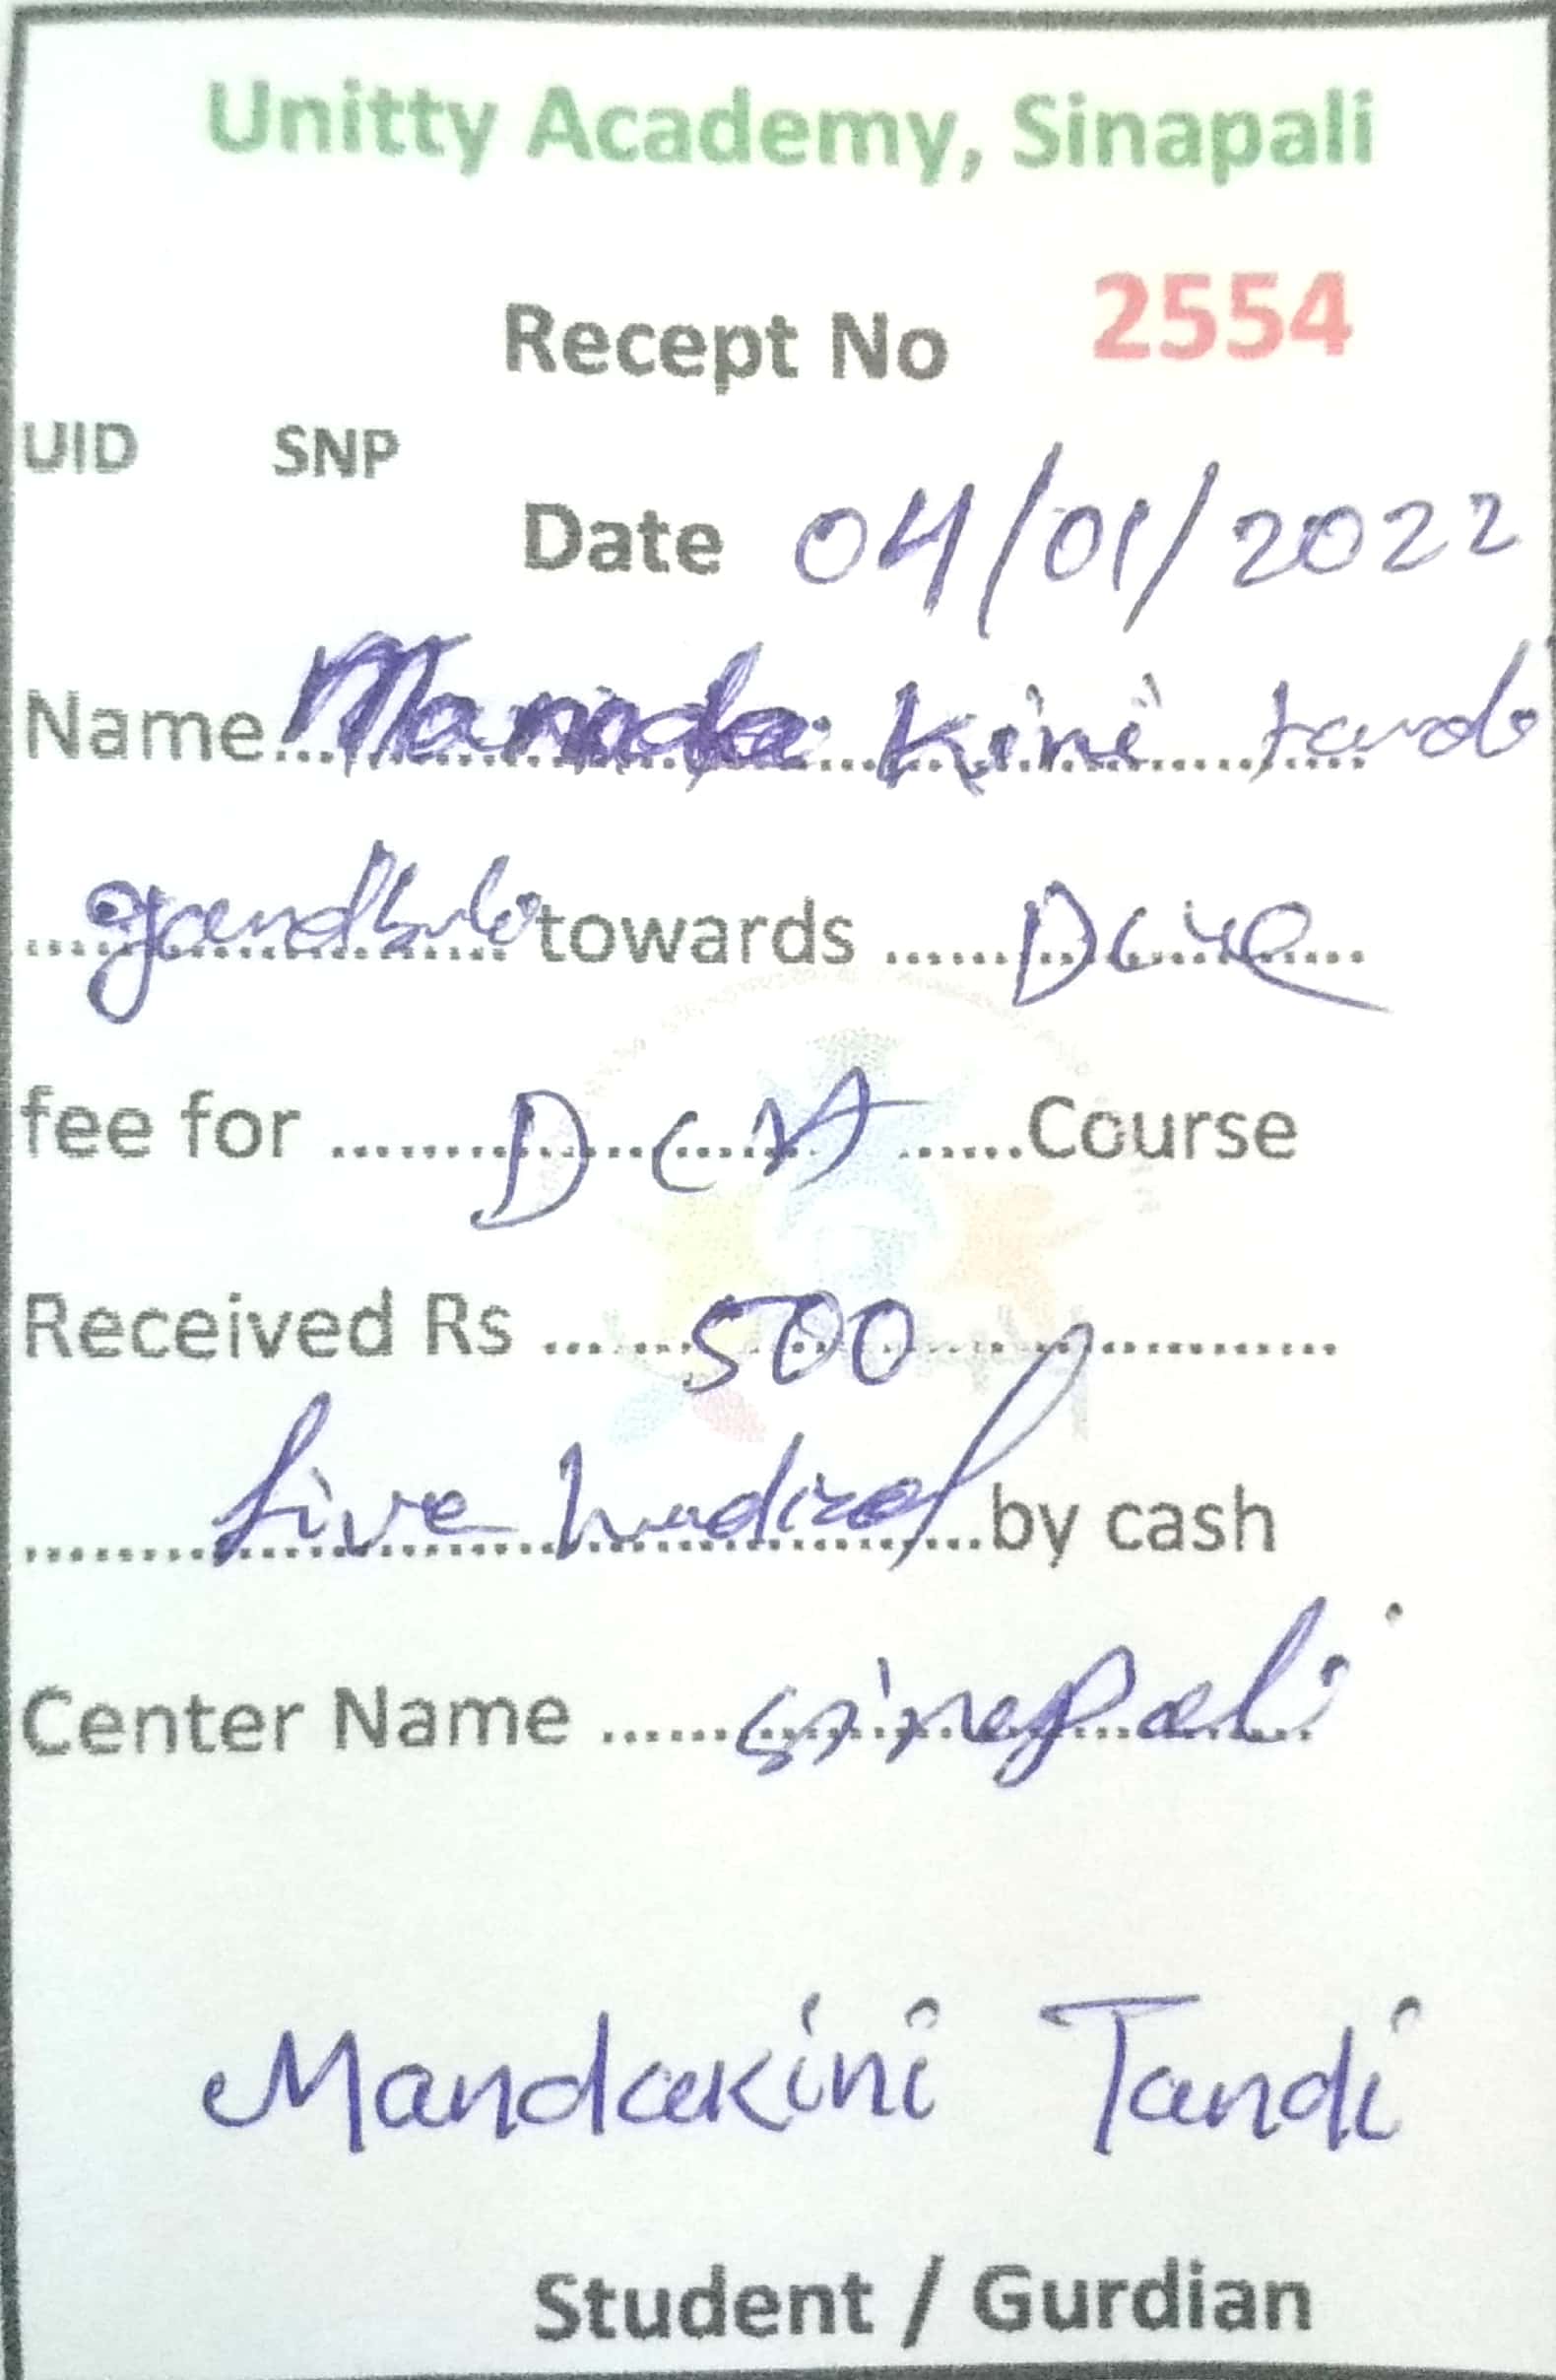 Unitty Academy, Sinapali
Recept No 2554
UID SNP
Date 04/01/2022
Name Manda kini tandi
towards Due
fee for DCA Course
Received Rs 500
five hundred by cash
Center Name sinapali
Mandakini Tandi
Student / Gurdian